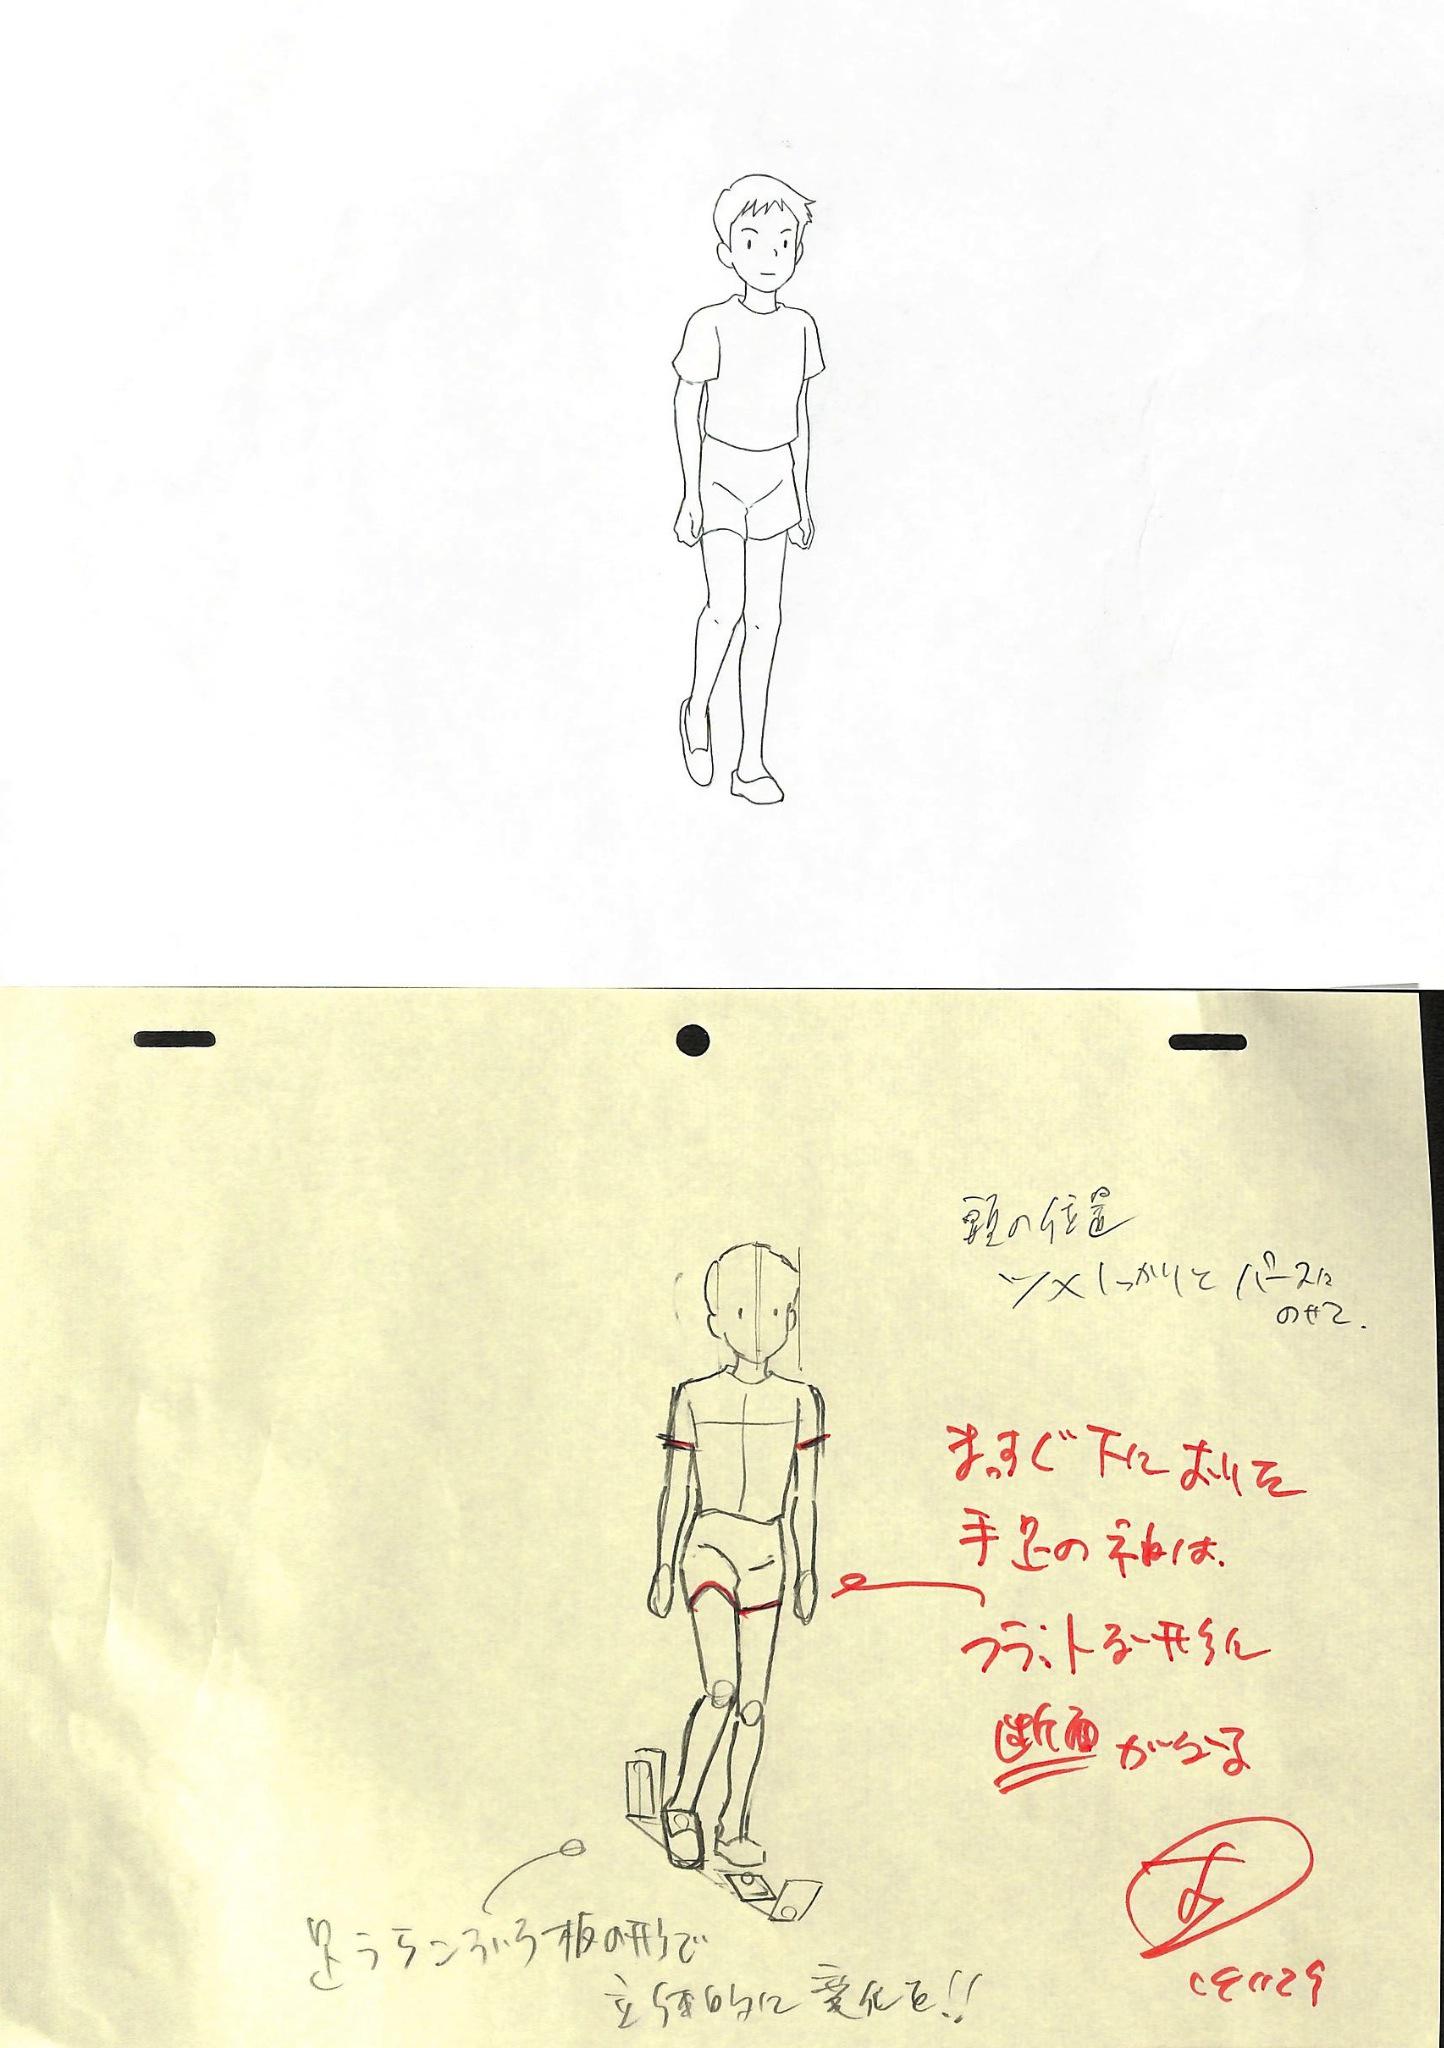 頭の位置
ツメしっかりと パースに
のせて.
まっすぐ下におりた
手足の袖は.
フラットな形に
断面がなる
足ウラ 板の形で
立体的に変化を!!
す